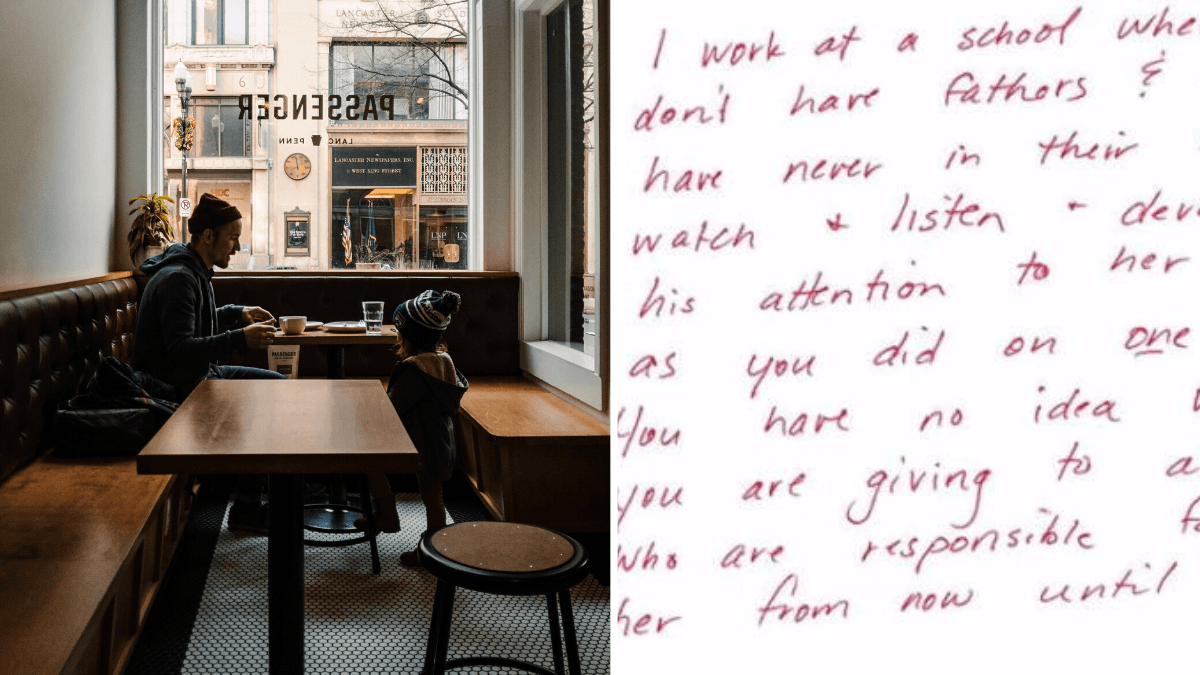 LANCASTER
PASSENGER
LANC PENN
LANCASTER NEWSPAPERS, INC.
8 WEST KING STREET
PASSENGER
LNP
I work at a school whe
don't have fathers &
have never in their
watch & listen + dev
his attention to her
as you did on one
You have no idea
you are giving to a
who are responsible fo
her from now until